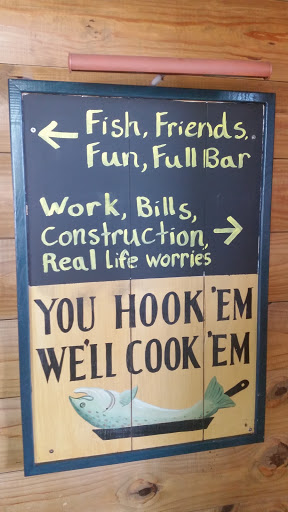 Fish, Friends,
Fun, Full Bar
Work, Bills,
Construction,
Real life worries
YOU HOOK 'EM
WE'LL COOK 'EM